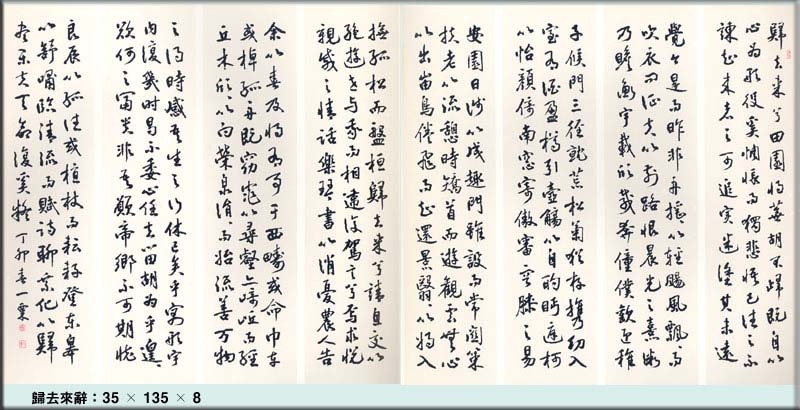 歸去來兮田園將蕪胡不歸既自以
心為形役奚惆悵而獨悲悟已往之不
諫知來者之可追實迷途其未遠
覺今是而昨非舟搖以輕颺風飄而
吹衣問征夫以前路恨晨光之熹微
乃瞻衡宇載欣載奔僮僕歡迎稚
子候門三徑就荒松菊猶存攜幼入
室有酒盈樽引壺觴以自酌眄庭柯
以怡顏倚南窓寄傲審容膝之易
安園日涉以成趣門雖設而常關策
扶老以流憩時矯首而遐觀雲無心
以出岫鳥倦飛而知還景翳以將入
撫孤松而盤桓歸去來兮請息交以
絕遊世與我而相違復駕言兮焉求悅
親戚之情話樂琴書以消憂農人告
余以春及將有事于西疇或命巾車
或棹孤舟既窈窕以尋壑亦崎嶇而經
丘木欣以向榮泉涓而始流善萬物
之得時感吾生之行休已矣乎寓形宇
內復幾時曷不委心任去留胡為乎遑
欲何之富貴非吾願帝鄉不可期懷
良辰以孤往或植杖而耘耔登東皋
以舒嘯臨清流而賦詩聊乘化以歸
盡樂夫天命復奚疑 丁卯春一粟
歸去來辭：35 × 135 × 8